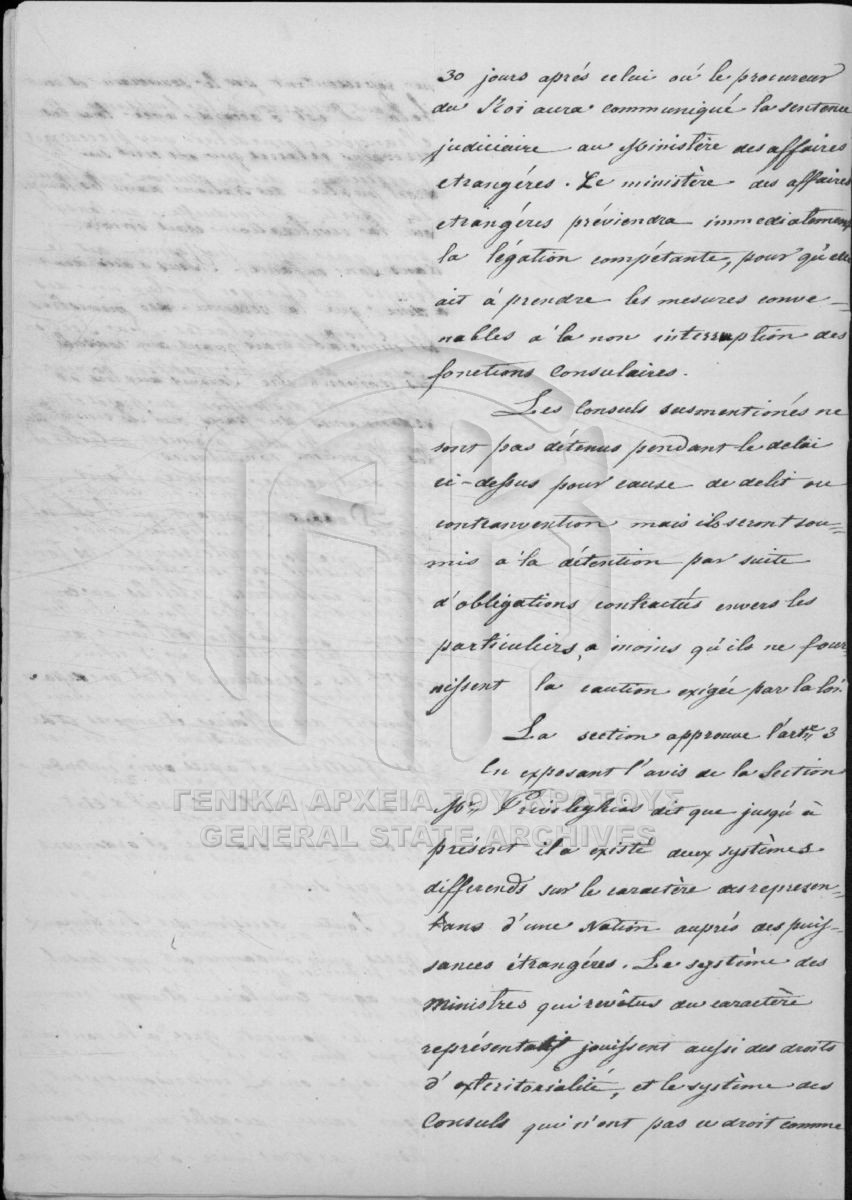 30 jours aprés celui où le procureur
du Roi aura communiqué la sentence
judiciaire au Ministère des affaires
etrangéres. Le ministère des affaires
etrangéres préviendra immediatement
la légation compétante, pour qu'elle
ait à prendre les mesures conve-
nables à la non interruption des
fonctions Consulaires.
Les Consuls susmentionés ne
sont pas détenus pendant le delai
ci-dessus pour cause de delit ou
contravention mais ils seront sou=
mis à la détention par suite
d'obligations contractés envers les
particuliers, a moins qu'ils ne four-
nissent la caution exigée par la loi.
La section approuve l'artle 3
En exposant l'avis de la Section
Mr Privileghios dit que jusqu'à
présent il a existé deux systèmes
differends sur le caractère des represen-
tans d'une Nation auprés des puis-
sances étrangéres. Le système des
Ministres qui revêtus du caractère
représentatif jouissent aussi des droits
d'exteritorialité, et le système des
Consuls qui n'ont pas ce droit comme
ΓΕΝΙΚΑ ΑΡΧΕΙΑ ΤΟΥ ΚΡΑΤΟΥΣ
GENERAL STATE ARCHIVES